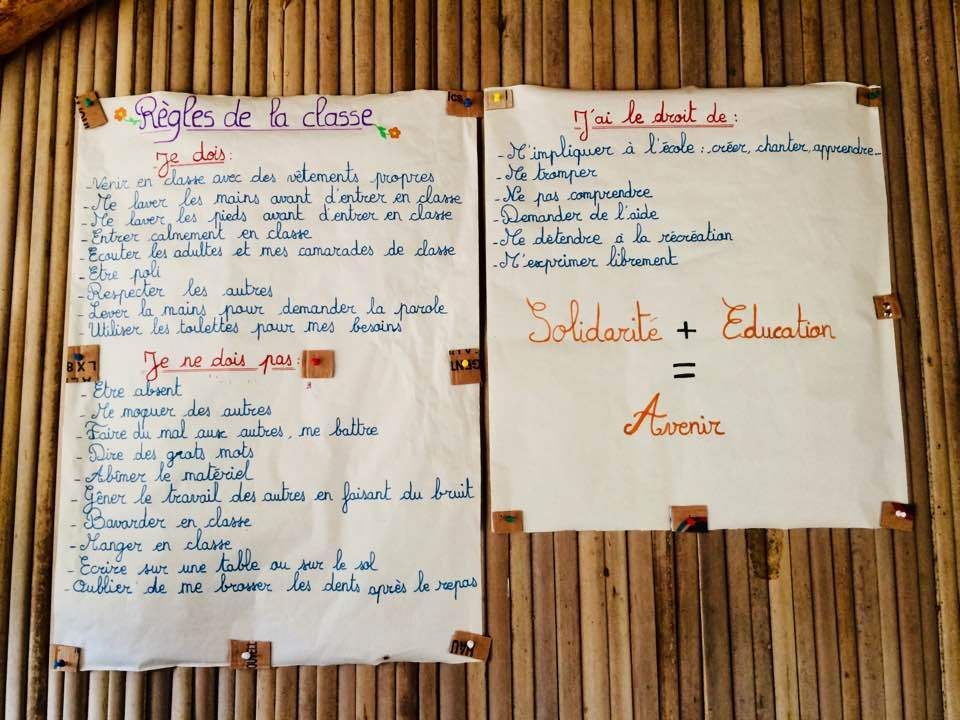 Règles de la classe
Je dois:
- Venir en classe avec des vêtements propres
- Me laver les mains avant d'entrer en classe
- Me laver les pieds avant d'entrer en classe
- Entrer calmement en classe
- Ecouter les adultes et mes camarades de classe
- Etre poli
- Respecter les autres
- Lever la mains pour demander la parole
- Utiliser les toilettes pour mes besoins
Je ne dois pas:
- Etre absent
- Me moquer des autres
- Faire du mal aux autres, me battre
- Dire des grats mots
- Abîmer le matériel
- Gêner le travail des autres en faisant du bruit
- Bavarder en classe
- Manger en classe
- Ecrire sur une table ou sur le sol
- Oublier de me brosser les dents après le repas
J'ai le droit de:
- M'impliquer à l'école : créer, chanter, apprendre...
- Me tromper
- Ne pas comprendre
- Demander de l'aide
- Me détendre à la récréation
- M'exprimer librement
Solidarité + Education
=
Avenir